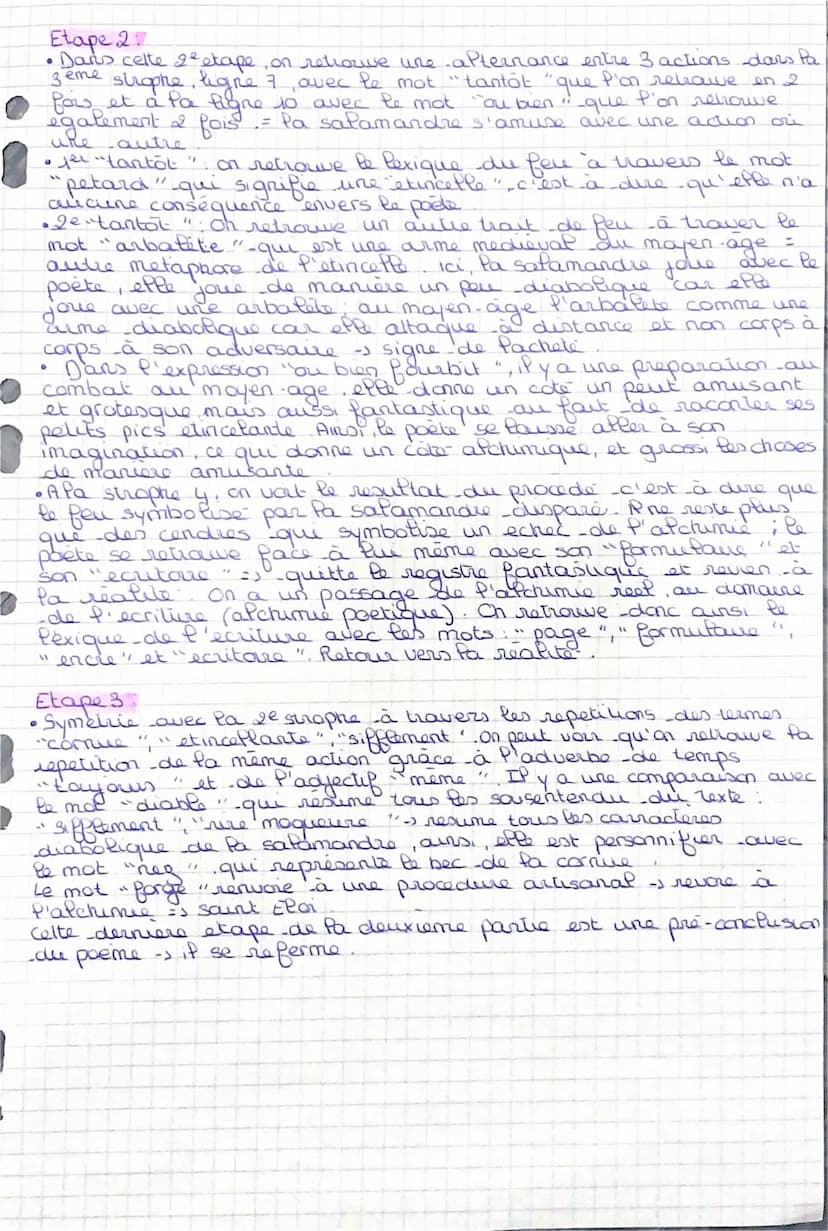 Etape 2 :
• Dans cette 2e etape, on retrouve une alternance entre 3 actions dans la
3ème strophe, ligne 7, avec le mot "tantôt" que l'on retrouve en 2
fois et à la ligne 10 avec le mot "ou bien" que l'on retrouve
egalement 2 fois. = la salamandre s'amuse avec une action ou
une autre.
• 1er "tantôt" : on retrouve le lexique du feu à travers le mot
"petard" qui signifie une "etincelle", c'est à dire qu'elle n'a
aucune conséquence envers le poète
• 2e "tantôt" : On retrouve un autre trait de feu à traver le
mot "arbalète" qui est une arme medieval du moyen-âge =
autre metaphore de l'etincelle. ici, la salamandre joue avec le
poète, elle joue de manière un peu diabolique car elle
joue avec une arbalète : au moyen-âge l'arbalète comme une
arme diabolique car elle attaque à distance et non corps à
corps à son adversaire -> signe de lacheté.
• Dans l'expression "ou bien fourbit", il y a une preparation au
combat au moyen-age, elle donne un coté un peut amusant
et grotesque mais aussi fantastique au fait de raconter ses
petits pics etincelante. Ainsi, le poète se laisse aller à son
imagination, ce qui donne un côté alchimique, et grossi les choses
de manière amusante.
• A la strophe 4, on voit le resultat du procedé c'est à dire que
le feu symbolisé par la salamandre disparé. Il ne reste plus
que des cendres qui symbolise un echec de l'alchimie ; le
poète se retrouve face à lui même avec son "formulaire" et
son "ecritoire" => quitte le registre fantastique et revien à
la réalité. On a un passage de l'alchimie réel, au domaine
de l'ecriture (alchimie poetique). On retrouve donc ainsi le
lexique de l'ecriture avec les mots : "page", "formulaire",
"encre" et "ecritoire". Retour vers la réalité.
Etape 3 :
• Symétrie avec la 2e strophe à travers les repetitions des termes
"cornue", "etincellante", "sifflement". On peut voir qu'on retrouve la
repetition de la même action grâce à l'adverbe de temps
"toujours" et de l'adjectif "même". Il y a une comparaison avec
le mot "diable" qui résume tous les sousentendu du texte :
"sifflement", "rire moqueure" -> resume tous les carracteres
diabolique de la salamandre, ainsi, elle est personnifier avec
le mot "nez", qui représente le bec de la cornue.
Le mot "forge" renvoie à une procedure artisanal -> revoie à
l'alchimie => saint Eloi.
Cette derniere etape de la deuxième partie est une pré-conclusion
du poème -> il se referme.